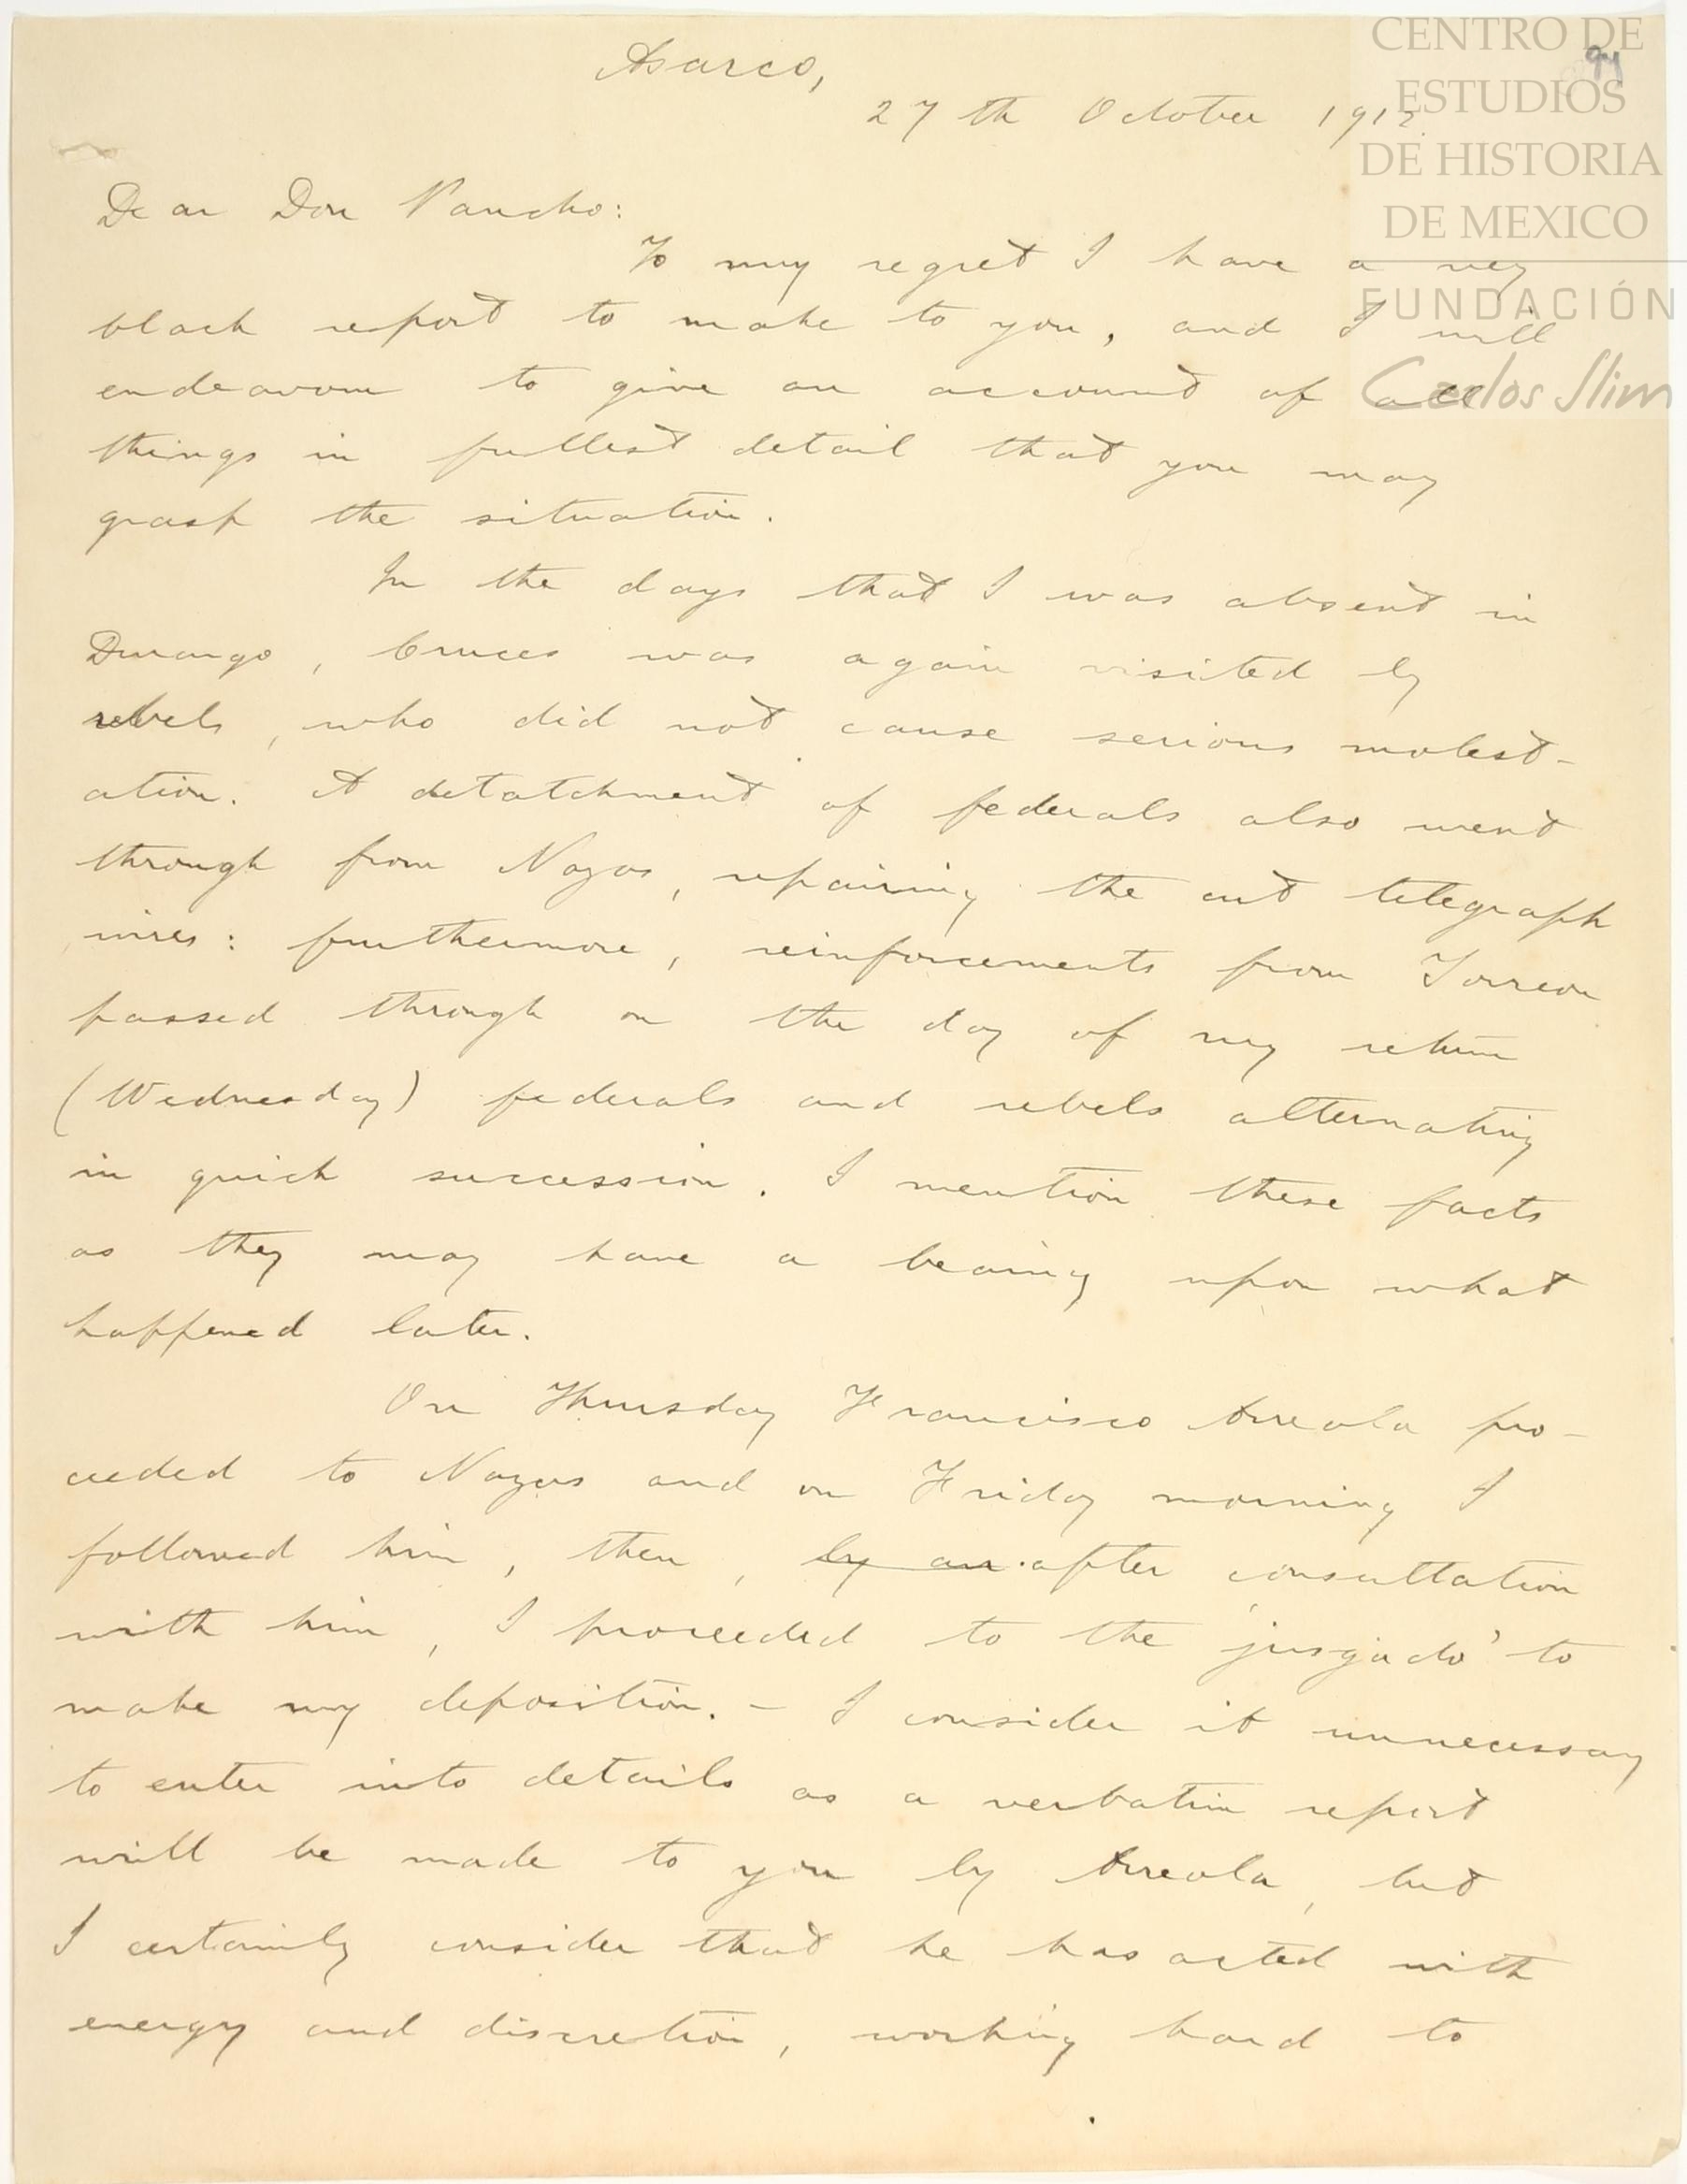 CENTRO DE
ESTUDIOS
DE HISTORIA
DE MEXICO
FUNDACIÓN
Carlos Slim
94
Asarco,
27th October 1912
Dear Don Pancho:
To my regret I have a very
black report to make to you, and I will
endeavour to give an account of all
things in fullest detail that you may
grasp the situation.
In the days that I was absent in
Durango, Cruces was again visited by
rebels, who did not cause serious molest-
ation. A detatchment of federals also went
through from Nazas, repairing the cut telegraph
wires: furthermore, reinforcements from Torreon
passed through on the day of my return
(Wednesday) federals and rebels alternating
in quick succession. I mention these facts
as they may have a bearing upon what
happened later.
On Thursday Francisco Arreola pro-
ceeded to Nazas and on Friday morning I
followed him, then, by an after consultation
with him, I proceeded to the 'jusgado' to
make my deposition. - I consider it unnecessary
to enter into details as a verbatim report
will be made to you by Arreola, but
I certainly consider that he has acted with
energy and discretion, working hard to